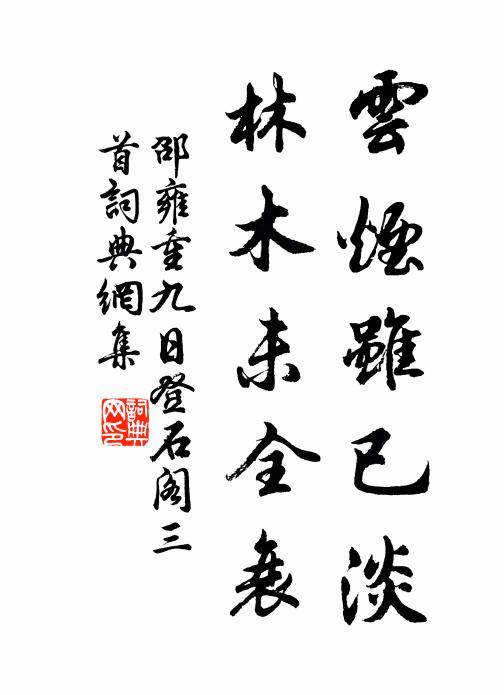 雲煙雖已淡
林木未全衰
邵雍重九日登石閣三
首詞典網集
詞典网印